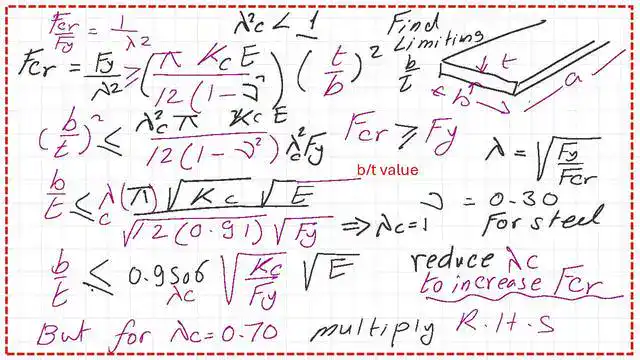 Fcr/Fy = 1/λ²
λ²c < 1
Find
Limiting
b/t
Fcr = Fy/λ² ≥ (π Kc E / 12(1-ν²)) (t/b)²
t
b
a
(b/t)² ≤ λ²c π Kc E / 12(1-ν²) λ²c Fy
Fcr ≥ Fy
λ = √(Fy/Fcr)
b/t value
b/t ≤ λc (π) √Kc √E / √12(0.91) √Fy ⇒ λc=1
ν = 0.30
For steel
b/t ≤ 0.9506 λc √(Kc/Fy) √E
reduce λc
to increase Fcr
But for λc=0.70 multiply R.H.S